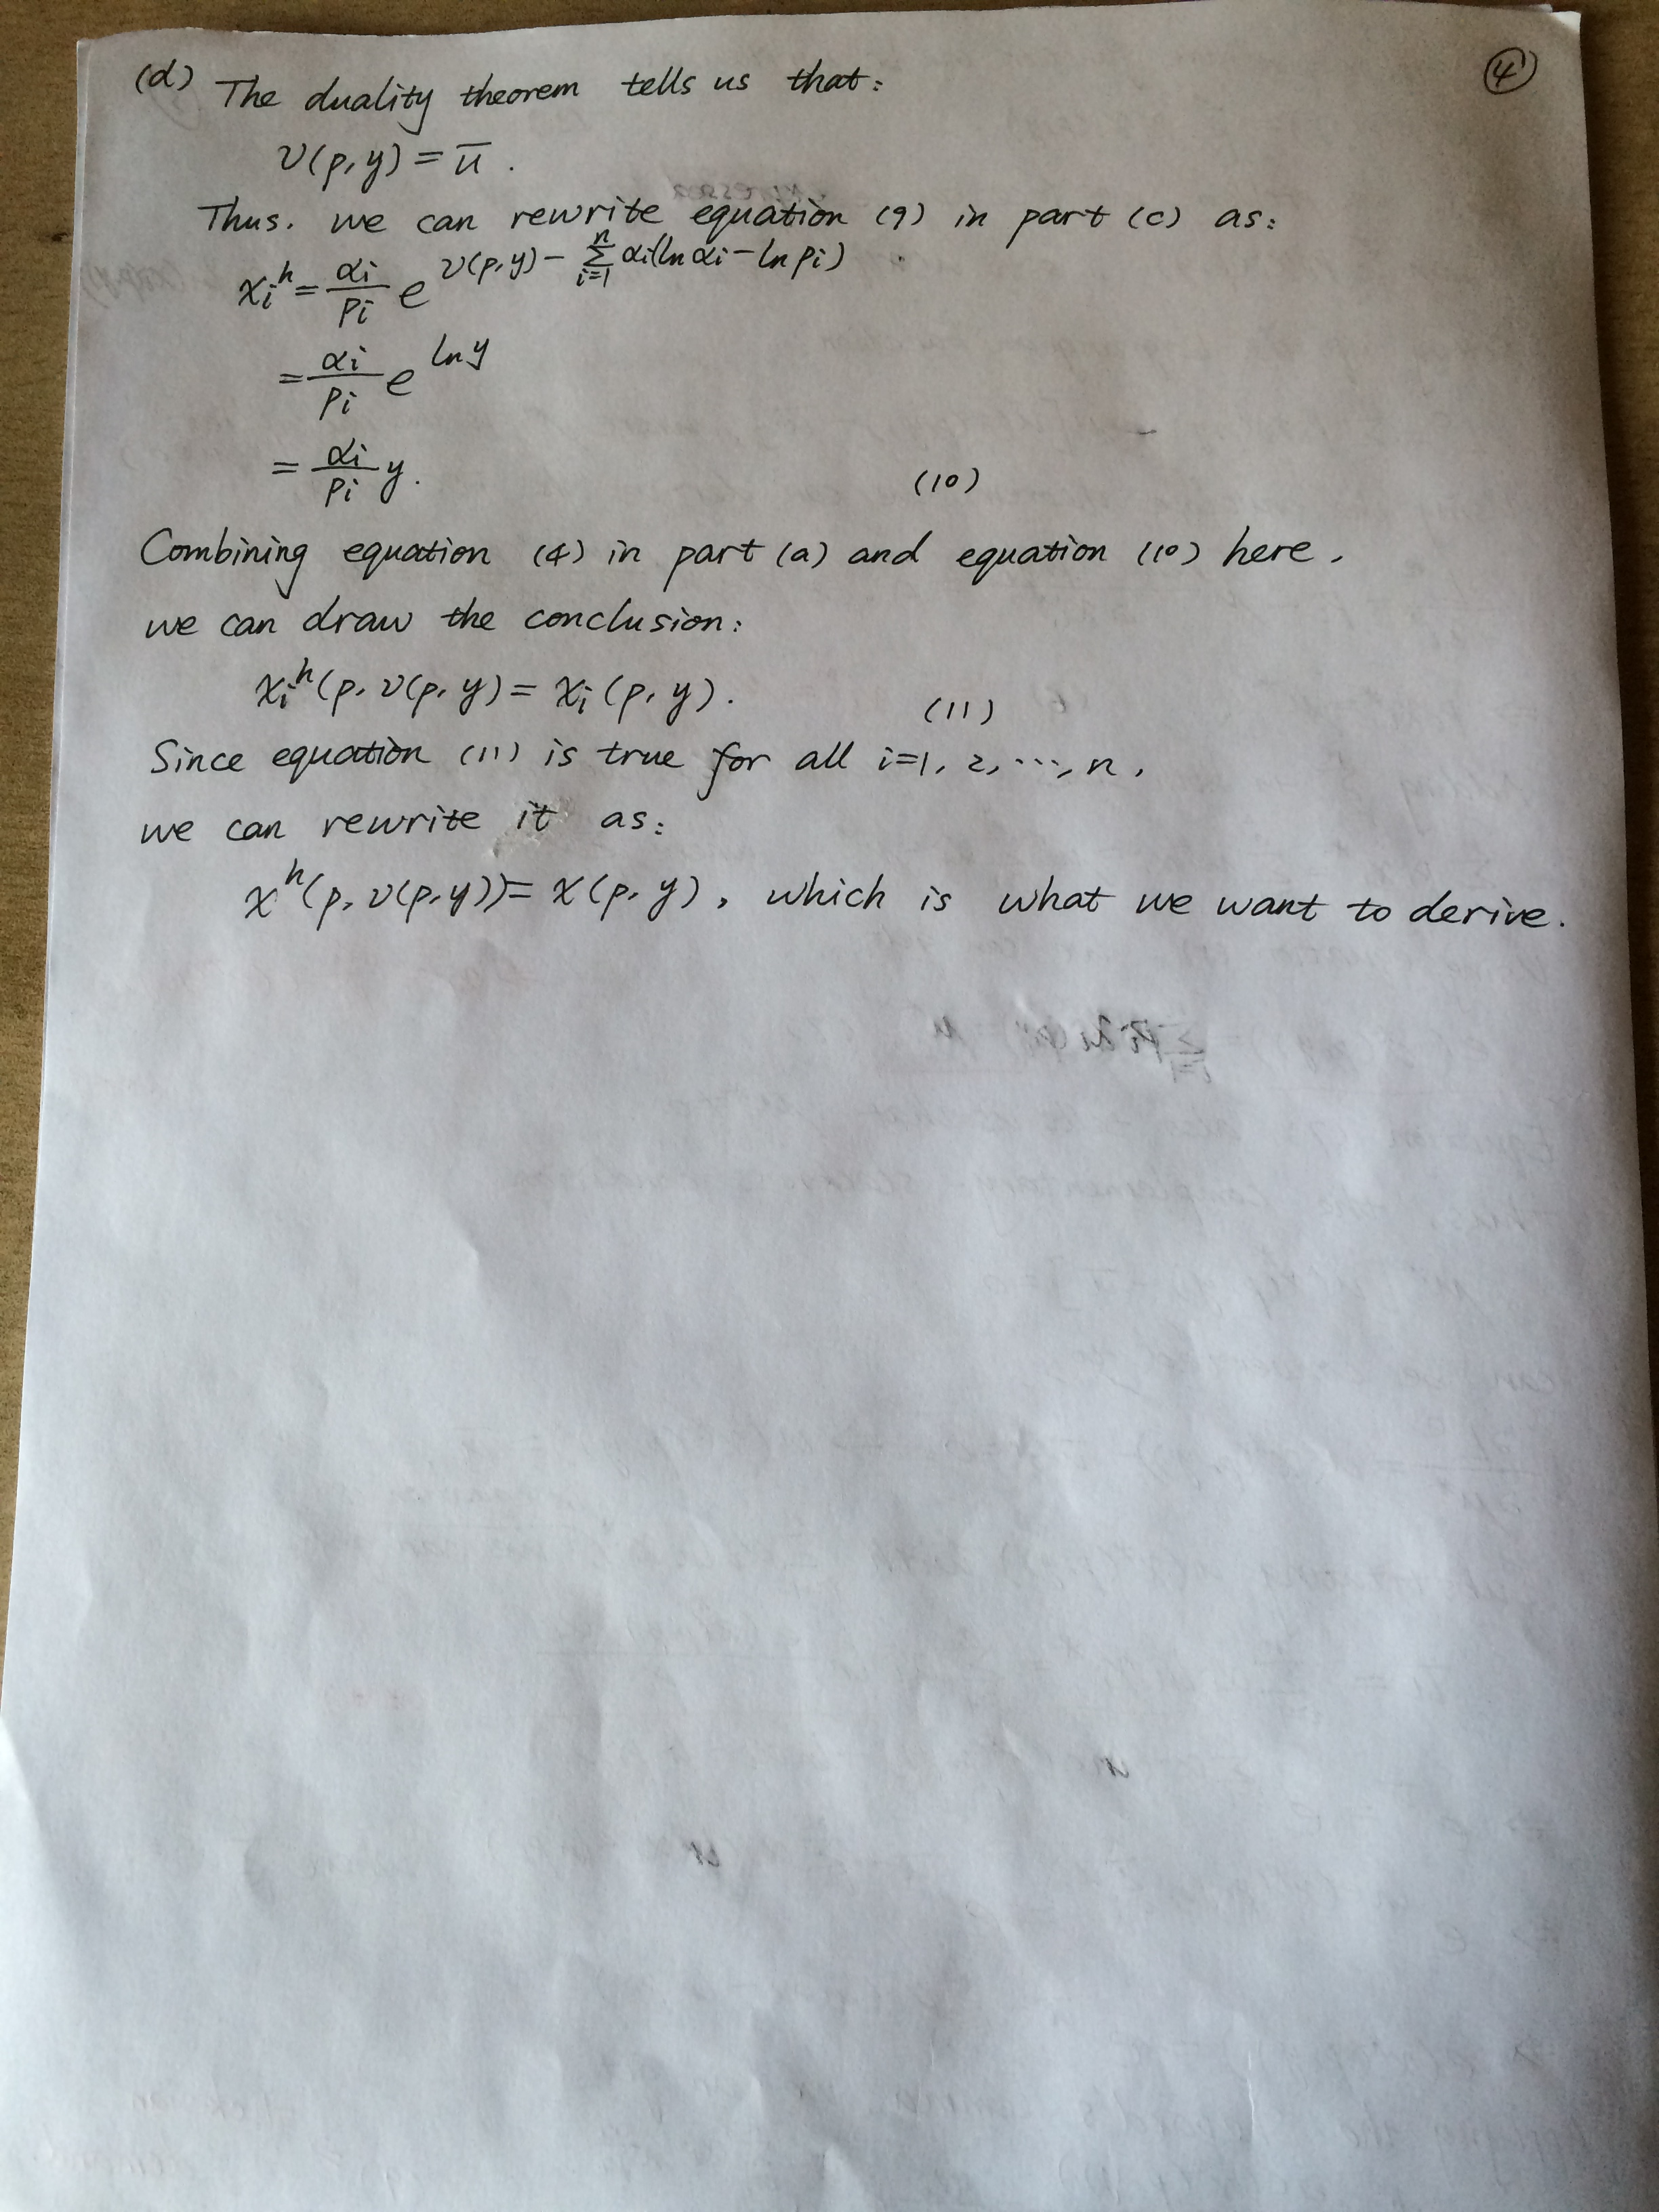 ④
(d) The duality theorem tells us that:
v(p, y) = ū .
Thus, we can rewrite equation (9) in part (c) as:
xᵢʰ = αᵢ/pᵢ e^{v(p,y) − ∑_{i=1}^{n} αᵢ(ln αᵢ − ln pᵢ)}
= αᵢ/pᵢ e^{ln y}
= αᵢ/pᵢ y. (10)
Combining equation (4) in part (a) and equation (10) here,
we can draw the conclusion:
xᵢʰ(p, v(p, y) = xᵢ(p, y). (11)
Since equation (11) is true for all i=1, 2, ..., n,
we can rewrite it as:
xʰ(p, v(p,y)) = x(p, y), which is what we want to derive.